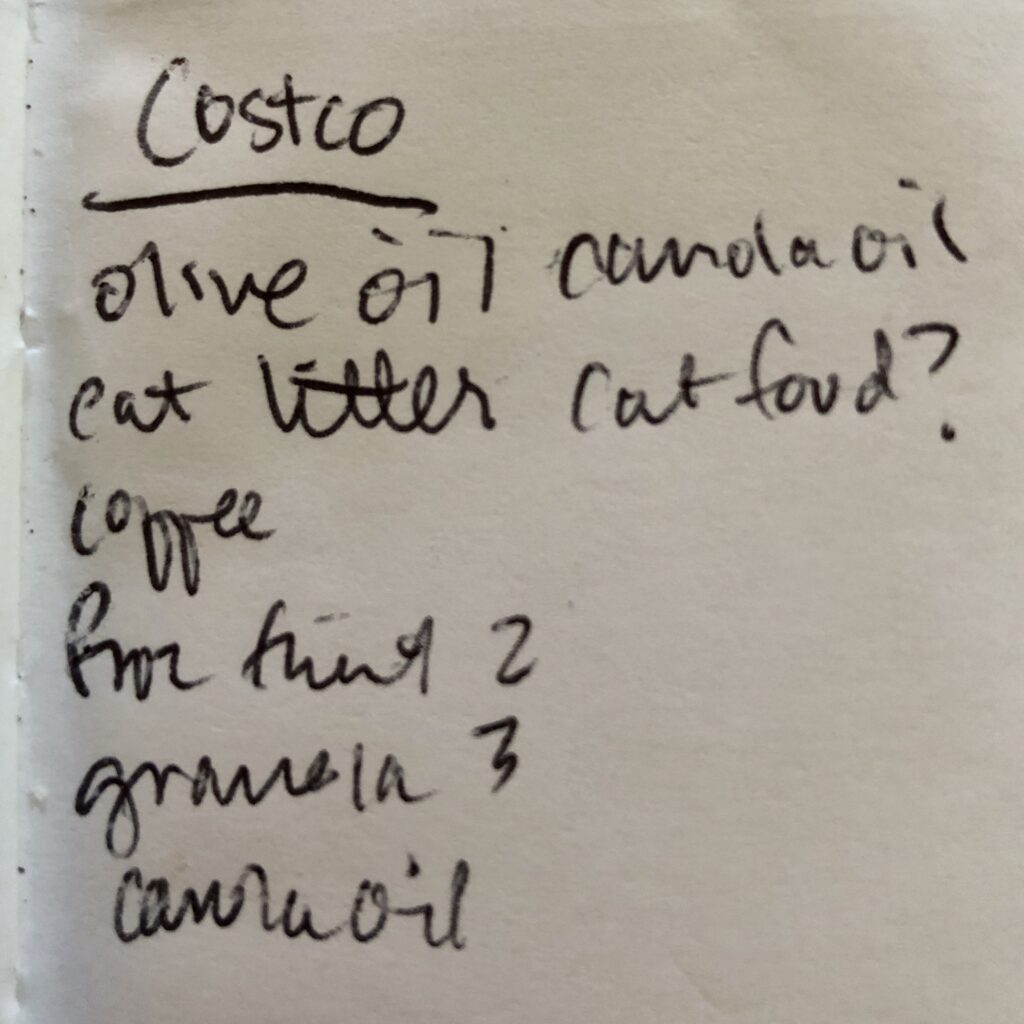 Costco
olive oil canola oil
cat litter cat food?
coffee
froz fruit 2
granola 3
canola oil